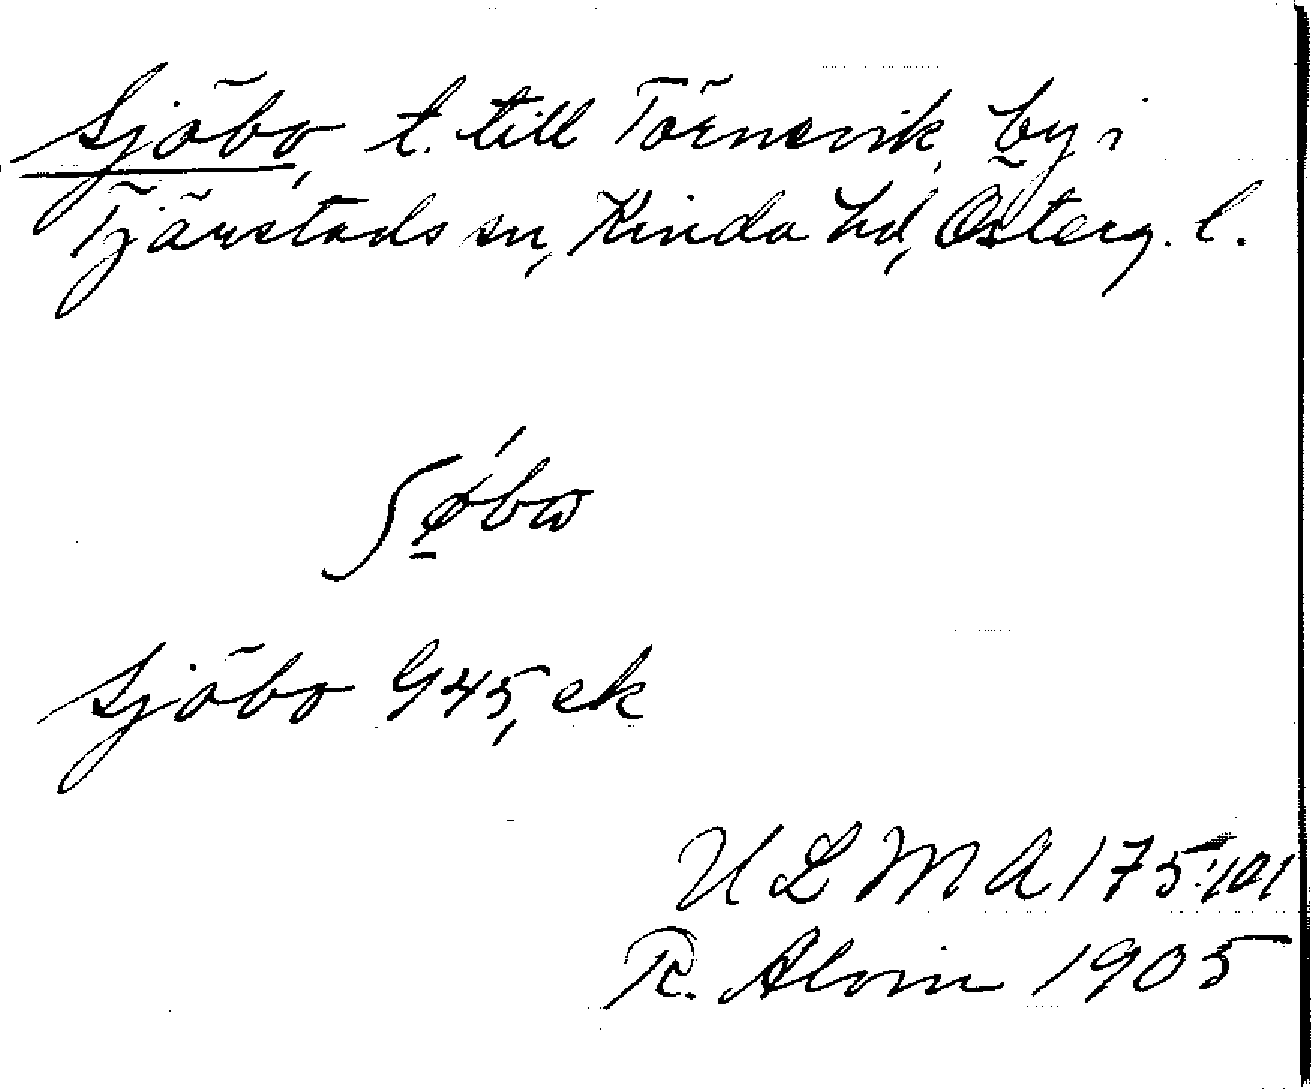 Sjöbo, t. till Törnsvik, by i
Tjärstads sn, Kinda hd, Österg. l.
ʃǿ̱bω
Sjöbo G45, ek
ULMA 175:101
R. Alvin 1905